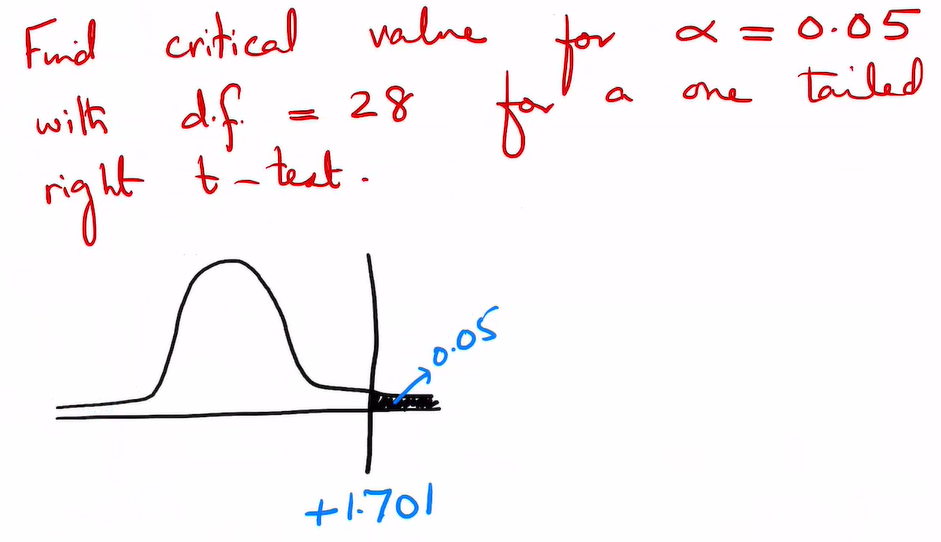 Find critical value for α = 0.05
with d.f. = 28 for a one tailed
right t-test.
0.05
+1.701